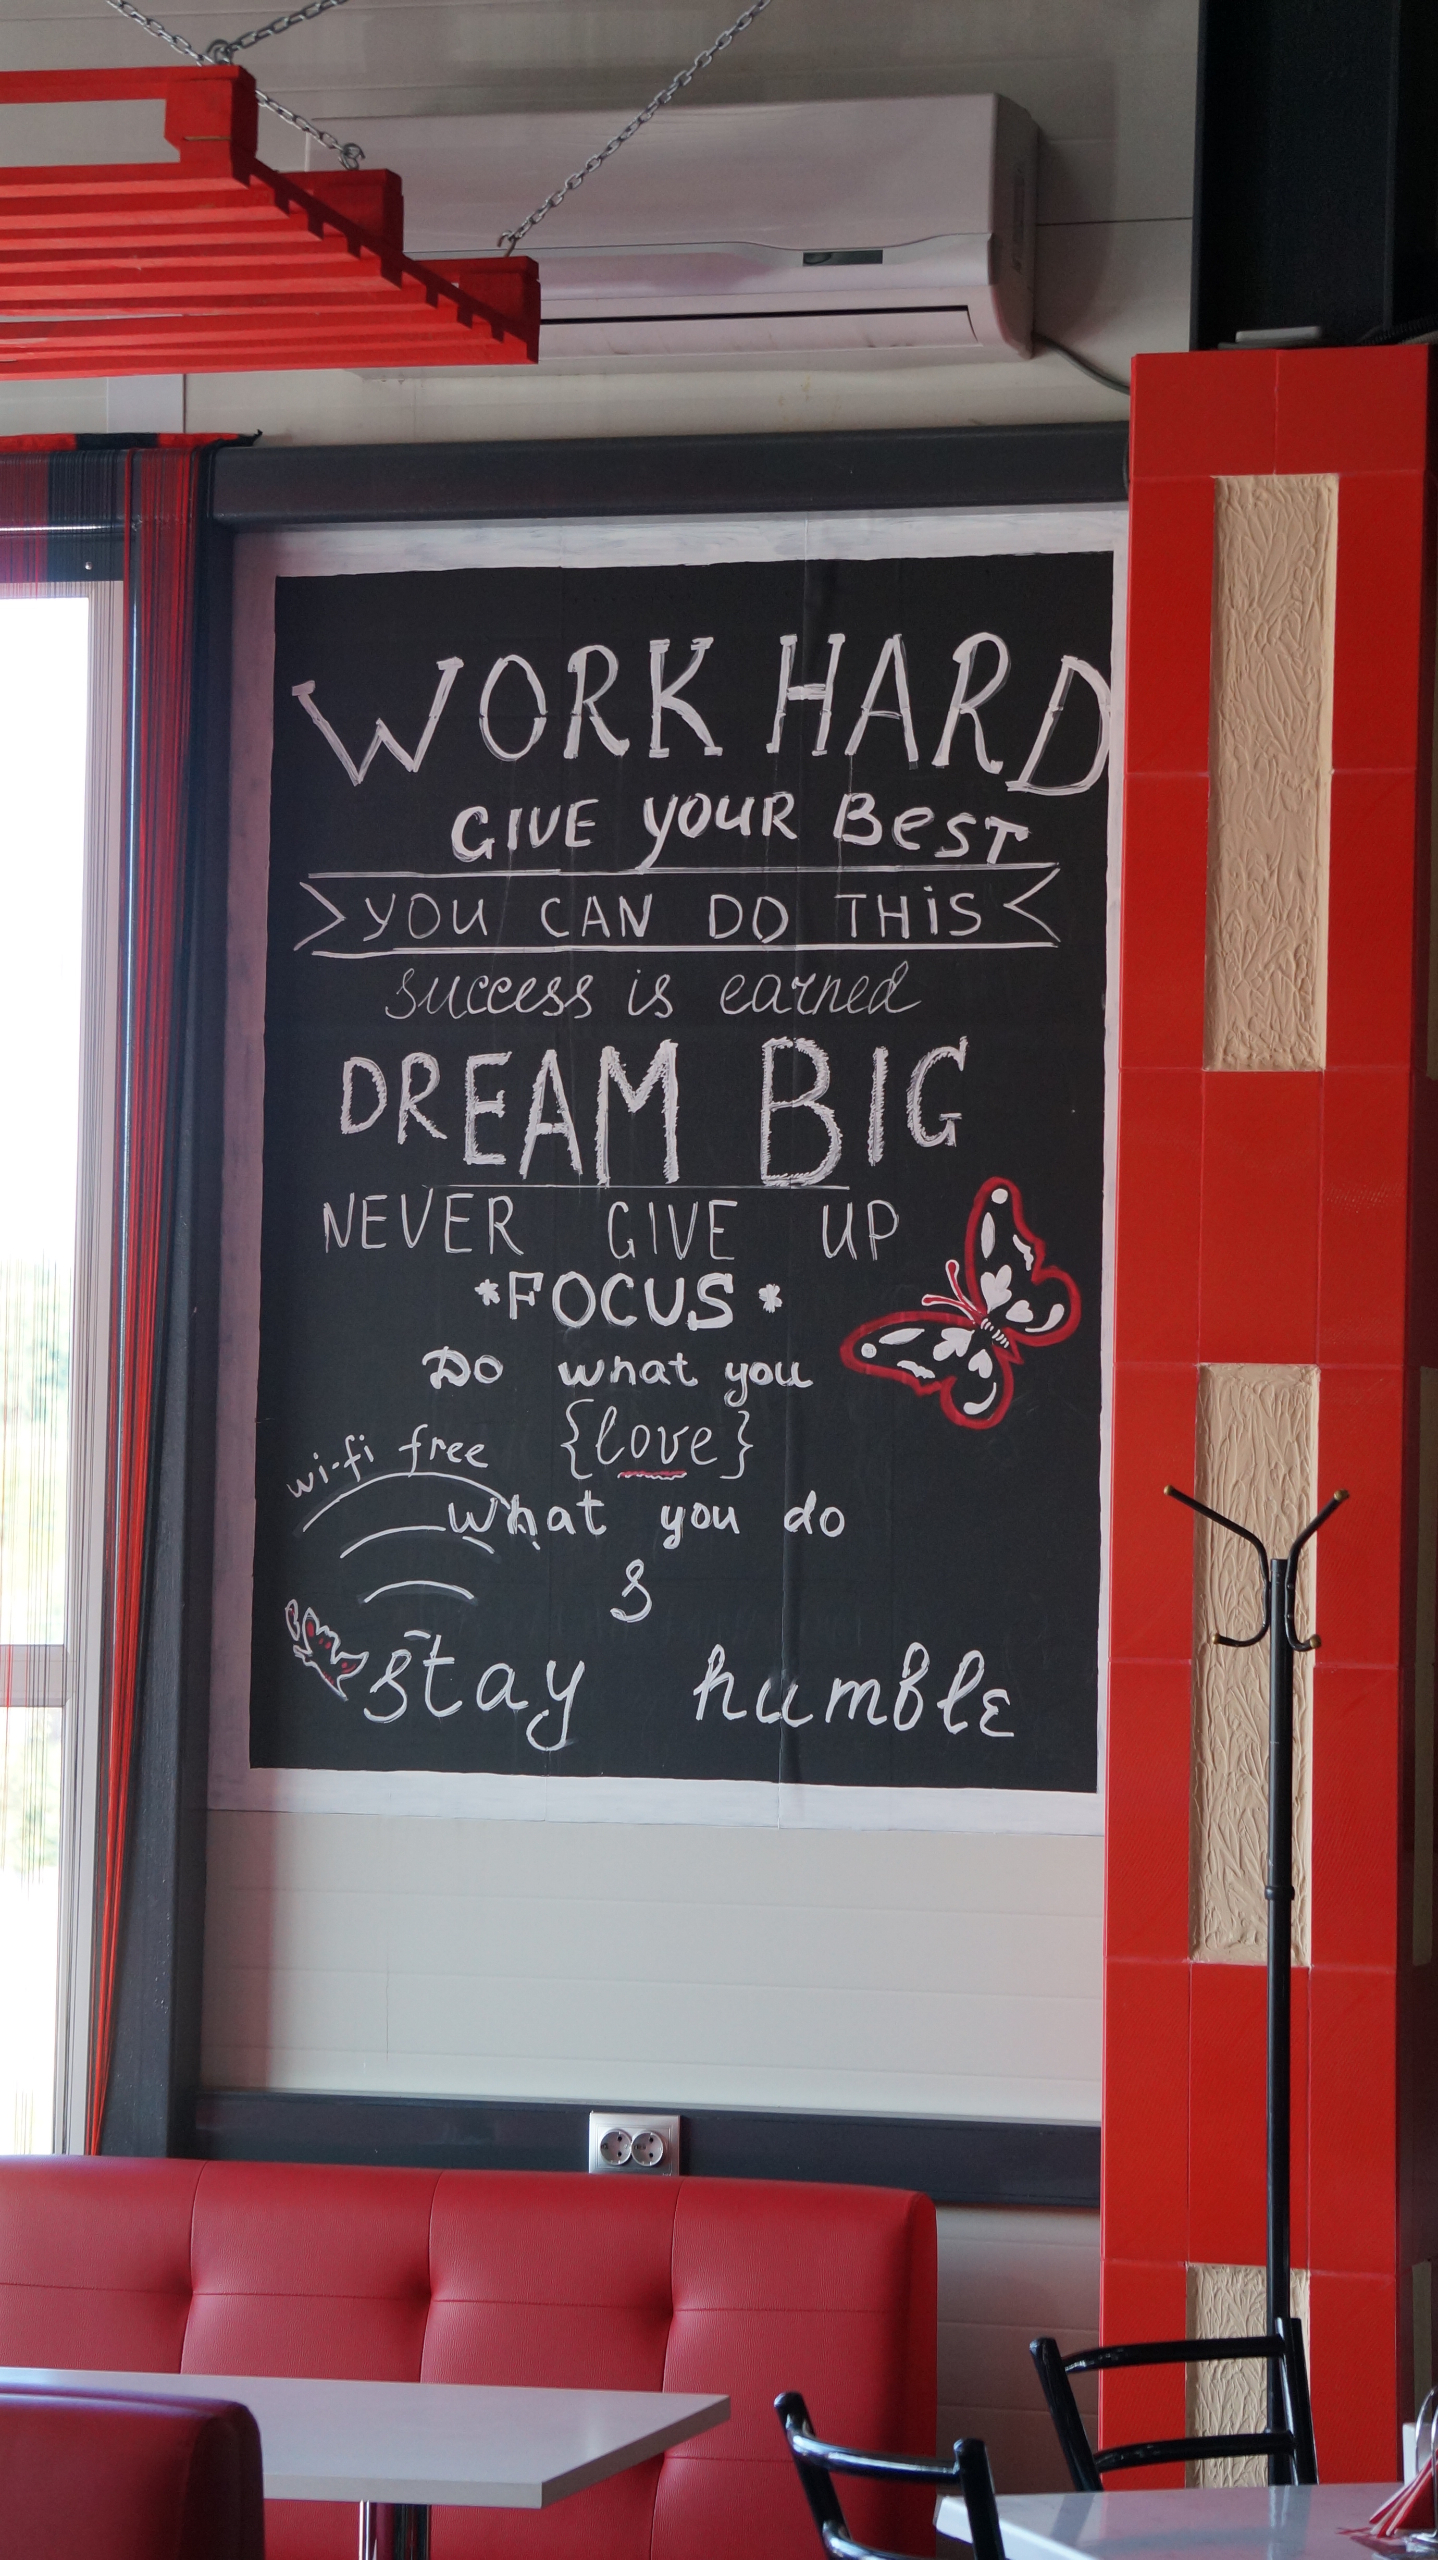 WORK HARD
GIVE YOUR BEST
YOU CAN DO THIS
success is earned
DREAM BIG
NEVER GIVE UP
*FOCUS*
Do what you
{love}
wi-fi free
what you do
&
stay humble